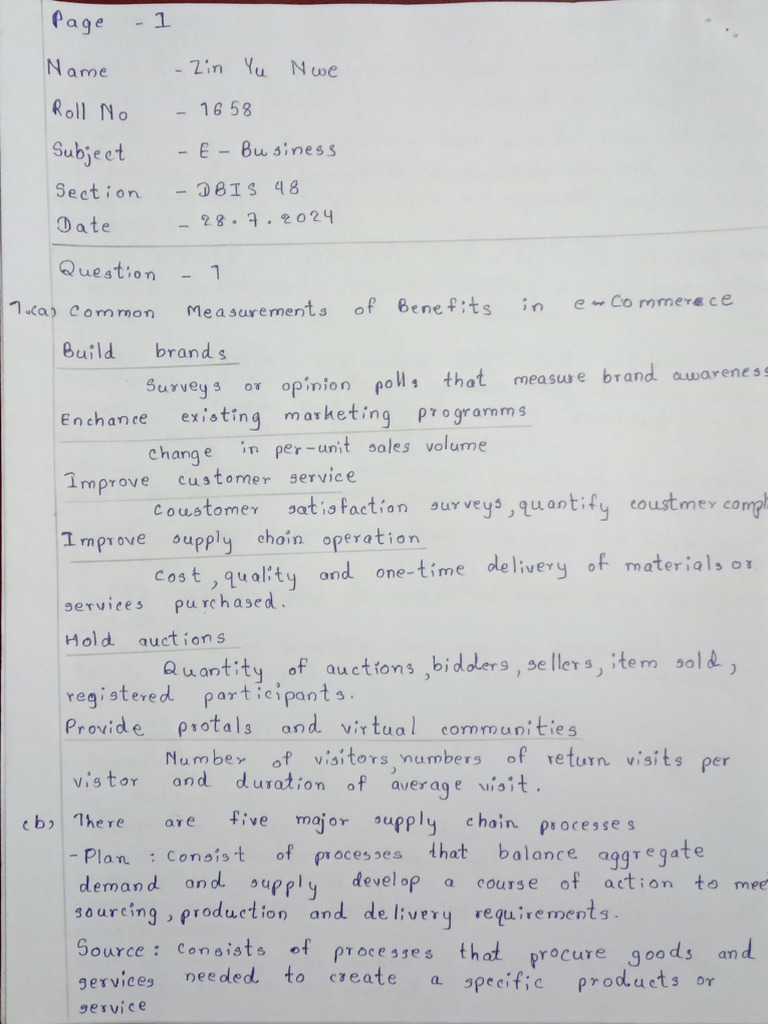 Page - 1
Name - Zin Yu Nwe
Roll No - 1658
Subject - E - Business
Section - DBIS 48
Date - 28.7.2024
Question - 1
1.(a) Common Measurements of Benefits in e-Commerece
Build brands
Surveys or opinion polls that measure brand awareness
Enchance existing marketing programms
change in per-unit sales volume
Improve customer service
Coustomer satisfaction surveys, quantify coustmer compl
Improve supply chain operation
Cost, quality and one-time delivery of materials or
services purchased.
Hold auctions
Quantity of auctions, bidders, sellers, item sold,
registered participants.
Provide protals and virtual communities
Number of visitors, numbers of return visits per
vistor and duration of average visit.
(b) There are five major supply chain processes
- Plan : Consist of processes that balance aggregate
demand and supply develop a course of action to mee
sourcing, production and delivery requirements.
Source : Consists of processes that procure goods and
services needed to create a specific products or
service